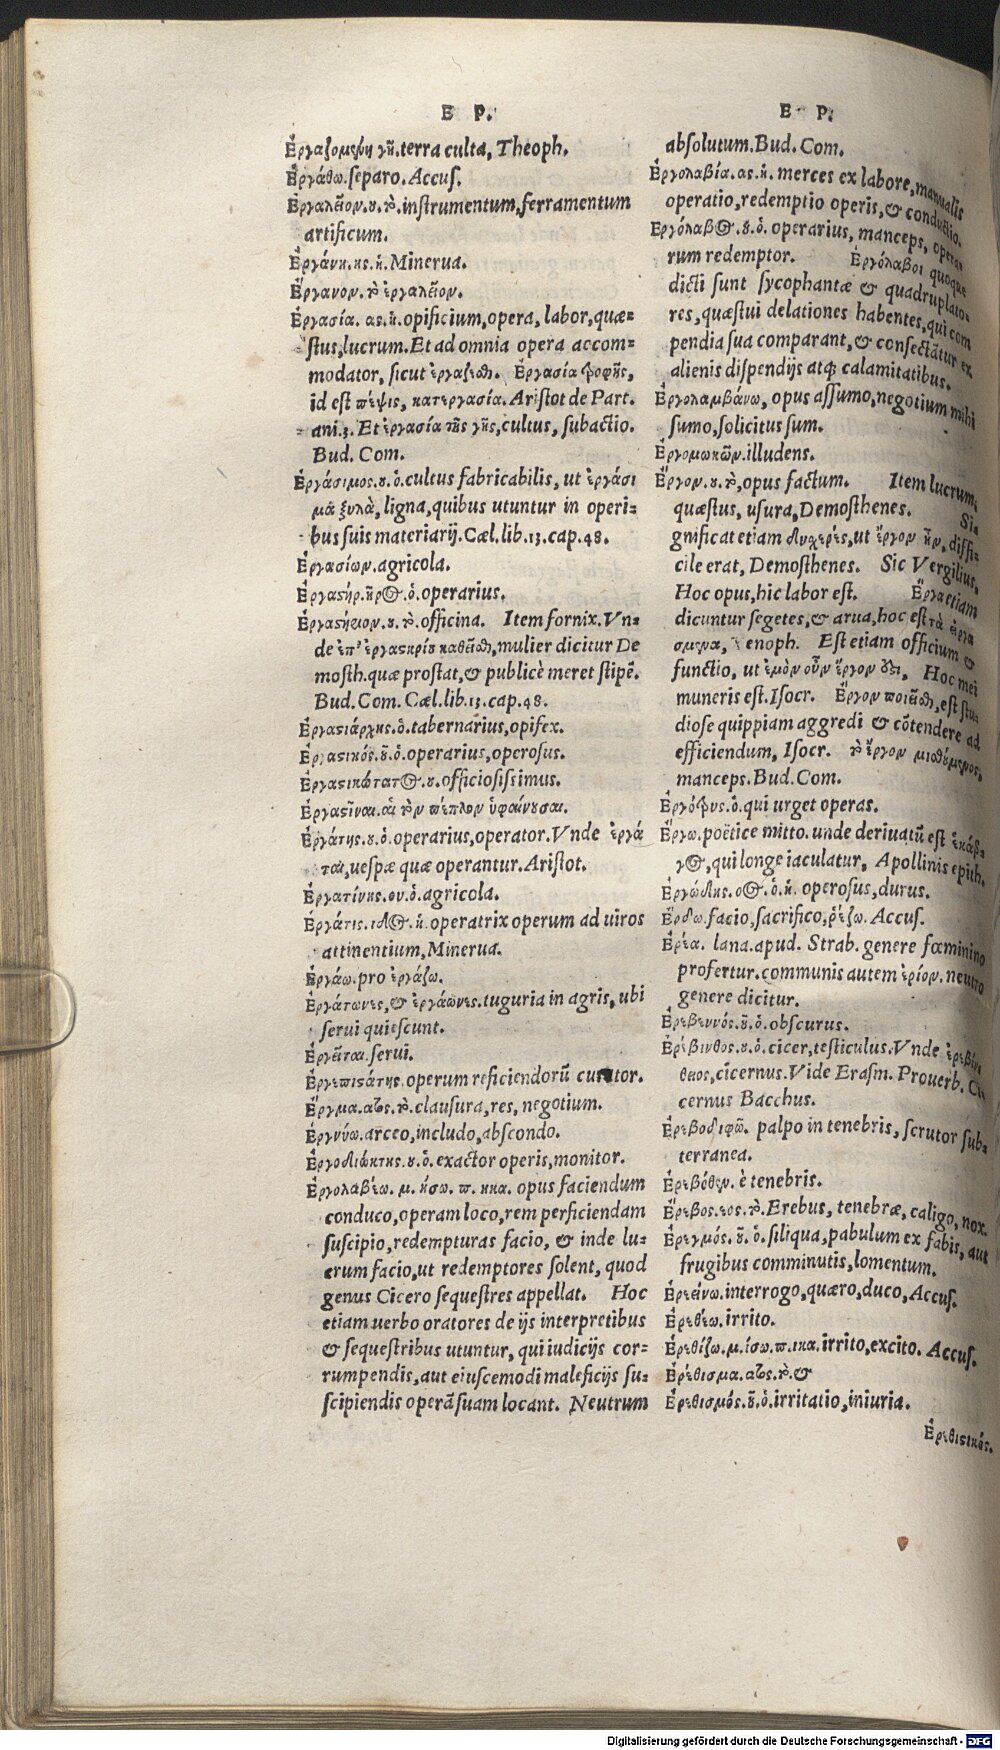 E P.
Ἐργαζομένη γῆ. terra culta, Theoph.
Ἐργάθω. separo. Accus.
Ἐργαλεῖον. ου. τὸ. instrumentum, ferramentum
artificum.
Ἐργάνη. ης. ἡ. Minerua.
Ἔργανον. τὸ ἐργαλεῖον.
Ἐργασία. ας. ἡ. opificium, opera, labor, quæ=
stus, lucrum. Et ad omnia opera accom=
modator, sicut ἐργάζεσθαι. Ἐργασία τροφῆς,
id est πέψις, κατεργασία. Aristot de Part.
ani.3. Et ἐργασία τῆς γῆς, cultus, subactio.
Bud. Com.
Ἐργάσιμος. ου. ὁ. cultus fabricabilis, ut ἐργάσι
μα ξυλὰ, ligna, quibus utuntur in operi=
bus suis materiarij. Cæl. lib. 13. cap. 48.
Ἐργασίων. agricola.
Ἐργαστήρ. ῆρος. ὁ. operarius.
Ἐργαστήριον. ου. τὸ. officina. Item fornix. Vn=
de ἐπ' ἐργαστηρίου καθεῖσθαι, mulier dicitur De
mosth. quæ prostat, & publicè meret stipẽ.
Bud. Com. Cæl. lib. 13. cap. 48.
Ἐργαστιάρχης. ὁ. tabernarius, opifex.
Ἐργαστικός. οῦ. ὁ. operarius, operosus.
Ἐργαστικώτατος. ου. officiosissimus.
Ἐργαστῖναι. αἱ τὸν πέπλον ὑφαίνουσαι.
Ἐργάτης. ου. ὁ. operarius, operator. Vnde ἐργά
ται, uespæ quæ operantur. Aristot.
Ἐργατίνης. ου. ὁ. agricola.
Ἐργάτις. ιδος. ἡ. operatrix operum ad uiros
attinentium, Minerua.
Ἐργάω. pro ἐργάζω.
Ἐργάτωνες, & ἐργάωνες. tuguria in agris, ubi
serui quiescunt.
Ἐργεῖται. serui.
Ἐργεπιστάτης. operum reficiendorũ curator.
Ἔργμα. ατος. τὸ. clausura, res, negotium.
Ἐργνύω. arceo, includo, abscondo.
Ἐργοδιώκτης. ου. ὁ. exactor operis, monitor.
Ἐργολαβέω. μ. ήσω. π. ηκα. opus faciendum
conduco, operam loco, rem perficiendam
suscipio, redempturas facio, & inde lu=
crum facio, ut redemptores solent, quod
genus Cicero sequestres appellat. Hoc
etiam uerbo oratores de ijs interpretibus
& sequestribus utuntur, qui iudicijs cor=
rumpendis, aut eiuscemodi maleficijs su=
scipiendis operã suam locant. Neutrum
E P.
absolutum. Bud. Com.
Ἐργολαβία. ας. ἡ. merces ex labore, manualis
operatio, redemptio operis, & conductio.
Ἐργόλαβος. ου. ὁ. operarius, manceps, opera=
rum redemptor. Ἐργόλαβοι quoque
dicti sunt sycophantæ & quadruplato=
res, quæstui delationes habentes, qui com
pendia sua comparant, & consectãtur ex
alienis dispendijs atq; calamitatibus.
Ἐργολαμβάνω, opus assumo, negotium mihi
sumo, solicitus sum.
Ἐργομωκῶν. illudens.
Ἔργον. ου. τὸ, opus factum. Item lucrum,
quæstus, usura, Demosthenes. Si=
gnificat etiam δυσχερές, ut ἔργον ἦν, diffi=
cile erat, Demosthenes. Sic Vergilius,
Hoc opus, hic labor est. Ἔργα etiam
dicuntur segetes, & arua, hoc est τὰ ἐργά
σιμα, enoph. Est etiam officium &
functio, ut ἐμὸν οὖν ἔργον ἐστί, Hoc mei
muneris est. Isocr. Ἔργον ποιεῖσθαι, est stu=
diose quippiam aggredi & cõtendere ad
efficiendum, Isocr. τὸ ἔργον μισθούμενος,
manceps. Bud. Com.
Ἐργότρυς. ὁ. qui urget operas.
Ἔργω. poëtice mitto. unde deriuatũ est ἑκάερ=
γος, qui longe iaculatur, Apollinis epith.
Ἐργώδης. εος. ὁ. ἡ. operosus, durus.
Ἔρδω. facio, sacrifico, ῥέζω. Accus.
Ἐρέα. lana. apud. Strab. genere fœminino
profertur. communis autem ἐρίον. neutro
genere dicitur.
Ἐρεβεννός. οῦ. ὁ. obscurus.
Ἐρέβινθος. ου. ὁ. cicer, testiculus. Vnde ἐρεβίν
θινος, cicernus. Vide Erasm. Prouerb. Ci=
cernus Bacchus.
Ἐρεβοδιφῶ. palpo in tenebris, scrutor sub=
terranea.
Ἐρεβόθεν. è tenebris.
Ἔρεβος. εος. τὸ. Erebus, tenebræ, caligo, nox.
Ἐρεγμός. οῦ. ὁ. siliqua, pabulum ex fabis, aut
frugibus comminutis, lomentum.
Ἐρεείνω. interrogo, quæro, duco, Accus.
Ἐρεθέω. irrito.
Ἐρεθίζω. μ. ίσω. π. ικα. irrito, excito. Accus.
Ἐρέθισμα. ατος. τὸ. &
Ἐρεθισμός. οῦ. ὁ. irritatio, iniuria.
Ἐρεθιστικός.
Digitalisierung gefördert durch die Deutsche Forschungsgemeinschaft - DFG